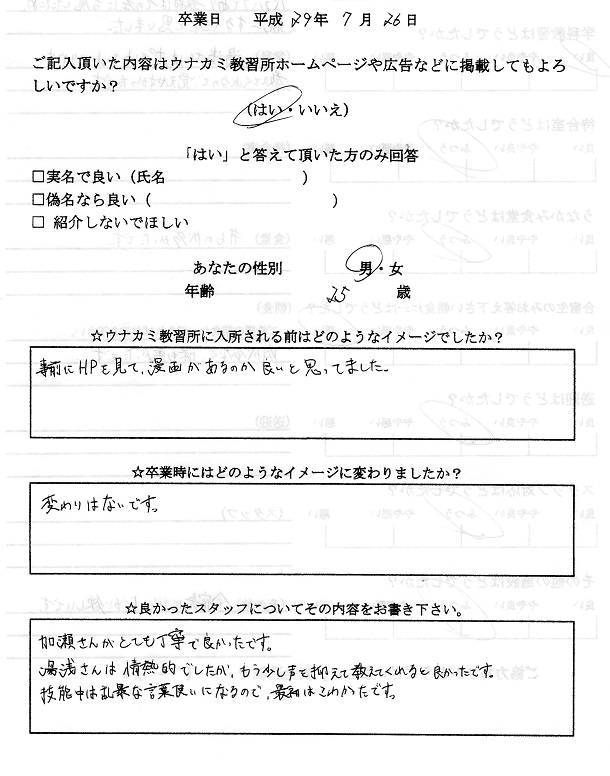 卒業日 平成 29年 7月 26日
ご記入頂いた内容はウナカミ教習所ホームページや広告などに掲載してもよろ
しいですか？
（はい・いいえ）
「はい」と答えて頂いた方のみ回答
□実名で良い（氏名 ）
□偽名なら良い（ ）
□ 紹介しないでほしい
あなたの性別 男・女
年齢 25 歳
☆ウナカミ教習所に入所される前はどのようなイメージでしたか？
事前にHPを見て、漫画があるのが良いと思ってました。
☆卒業時にはどのようなイメージに変わりましたか？
変わりはないです。
☆良かったスタッフについてその内容をお書き下さい。
加瀬さんがとても丁寧で良かったです。
湯浅さんは情熱的でしたが、もう少し声を抑えて教えてくれると良かったです。
技能中は乱暴な言葉使いになるので、最初はこわかったです。